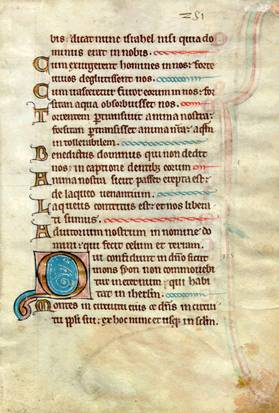 251
bis dicat nunc israhel nisi quia do
minus erat in nobis
Cum exurgerent homines in nos: forte
vivos deglutissent nos
Cum irasceretur furor eorum in nos: for
sitan aqua obsorbuisset nos
Torrentem pertransivit anima nostra:
forsitan pertransisset anima nra: aqm
intollerabilem
Benedictus dominus qui non dedit
nos: in captione dentibus eorum
Anima nostra sicut passer erepta est:
de laqueo venantium
Laqueus contritus est: et nos libera
ti sumus
Adiutorium nostrum in nomine do
mini: qui fecit celum et terram
Qui confidunt in dno sicut
mons syon non commovebi
tur in eternum: qui habi
tat in iherlm
Montes in circuitu eius et dns in circui
tu ppli sui: ex hoc nunc et usq in sclm